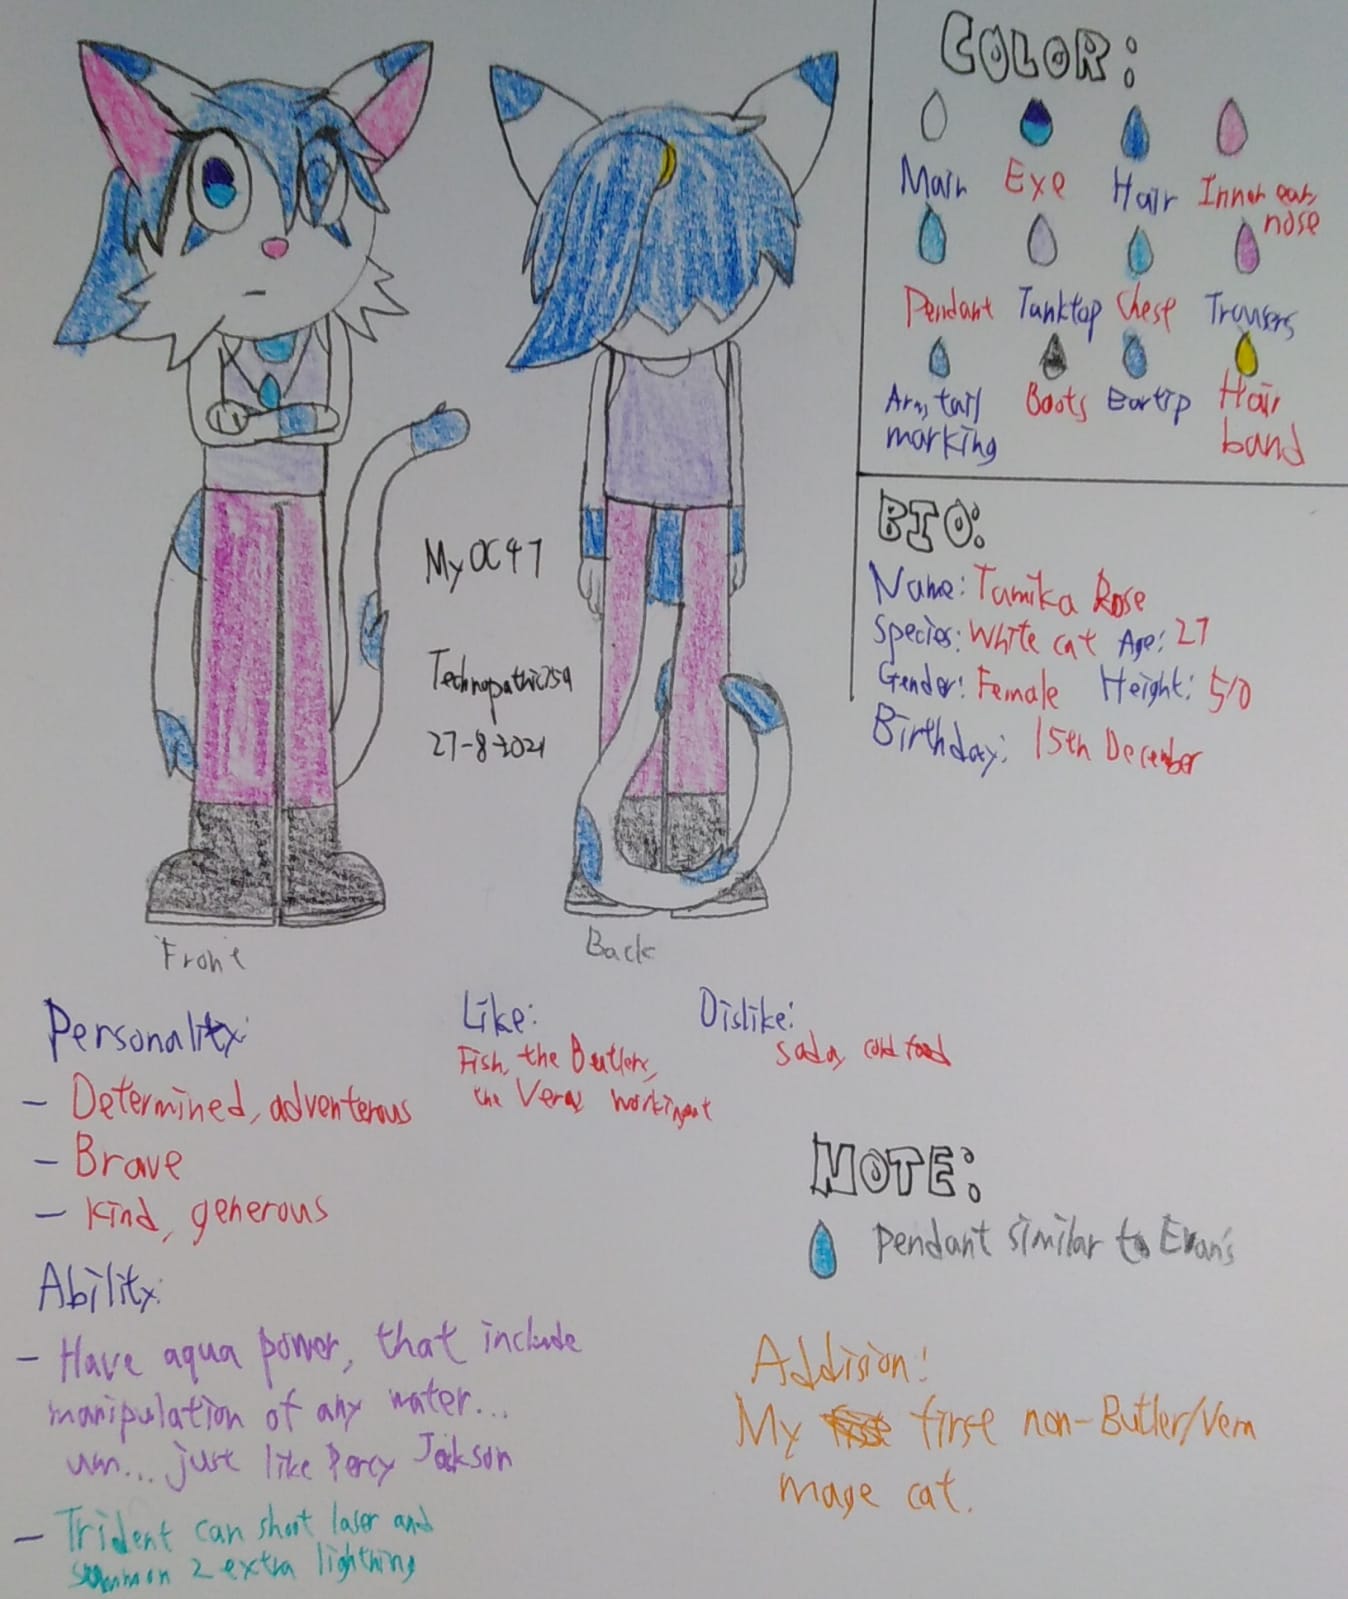 COLOR:
Main Eye Hair Inner ear, nose
Pendant Tanktop Chest Trousers
Arm, tail marking Boots Eartip Hair band
BIO:
Name: Tamika Rose
Species: White cat Age: 27
Gender: Female Height: 5'10
Birthday: 15th December
My OC 47
Technopathic759
27-8-2021
Front
Back
Personality:
- Determined, adventerous
- Brave
- Kind, generous
Like:
Fish, the Butlers,
the Veras, working out
Dislike:
soda, cold food
Ability:
- Have aqua power, that include
manipulation of any water...
um... just like Percy Jackson
- Trident can shoot laser and
summon 2 extra lightning
NOTE:
Pendant similar to Evan's
Addision:
My first non-Butler/Vera
mage cat.